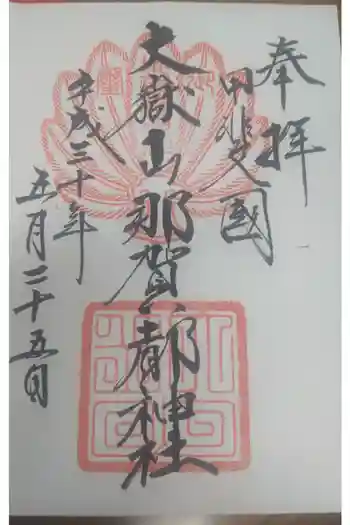 奉拝
甲斐国
大嶽山那賀都神社
平成三十年
五月二十五日